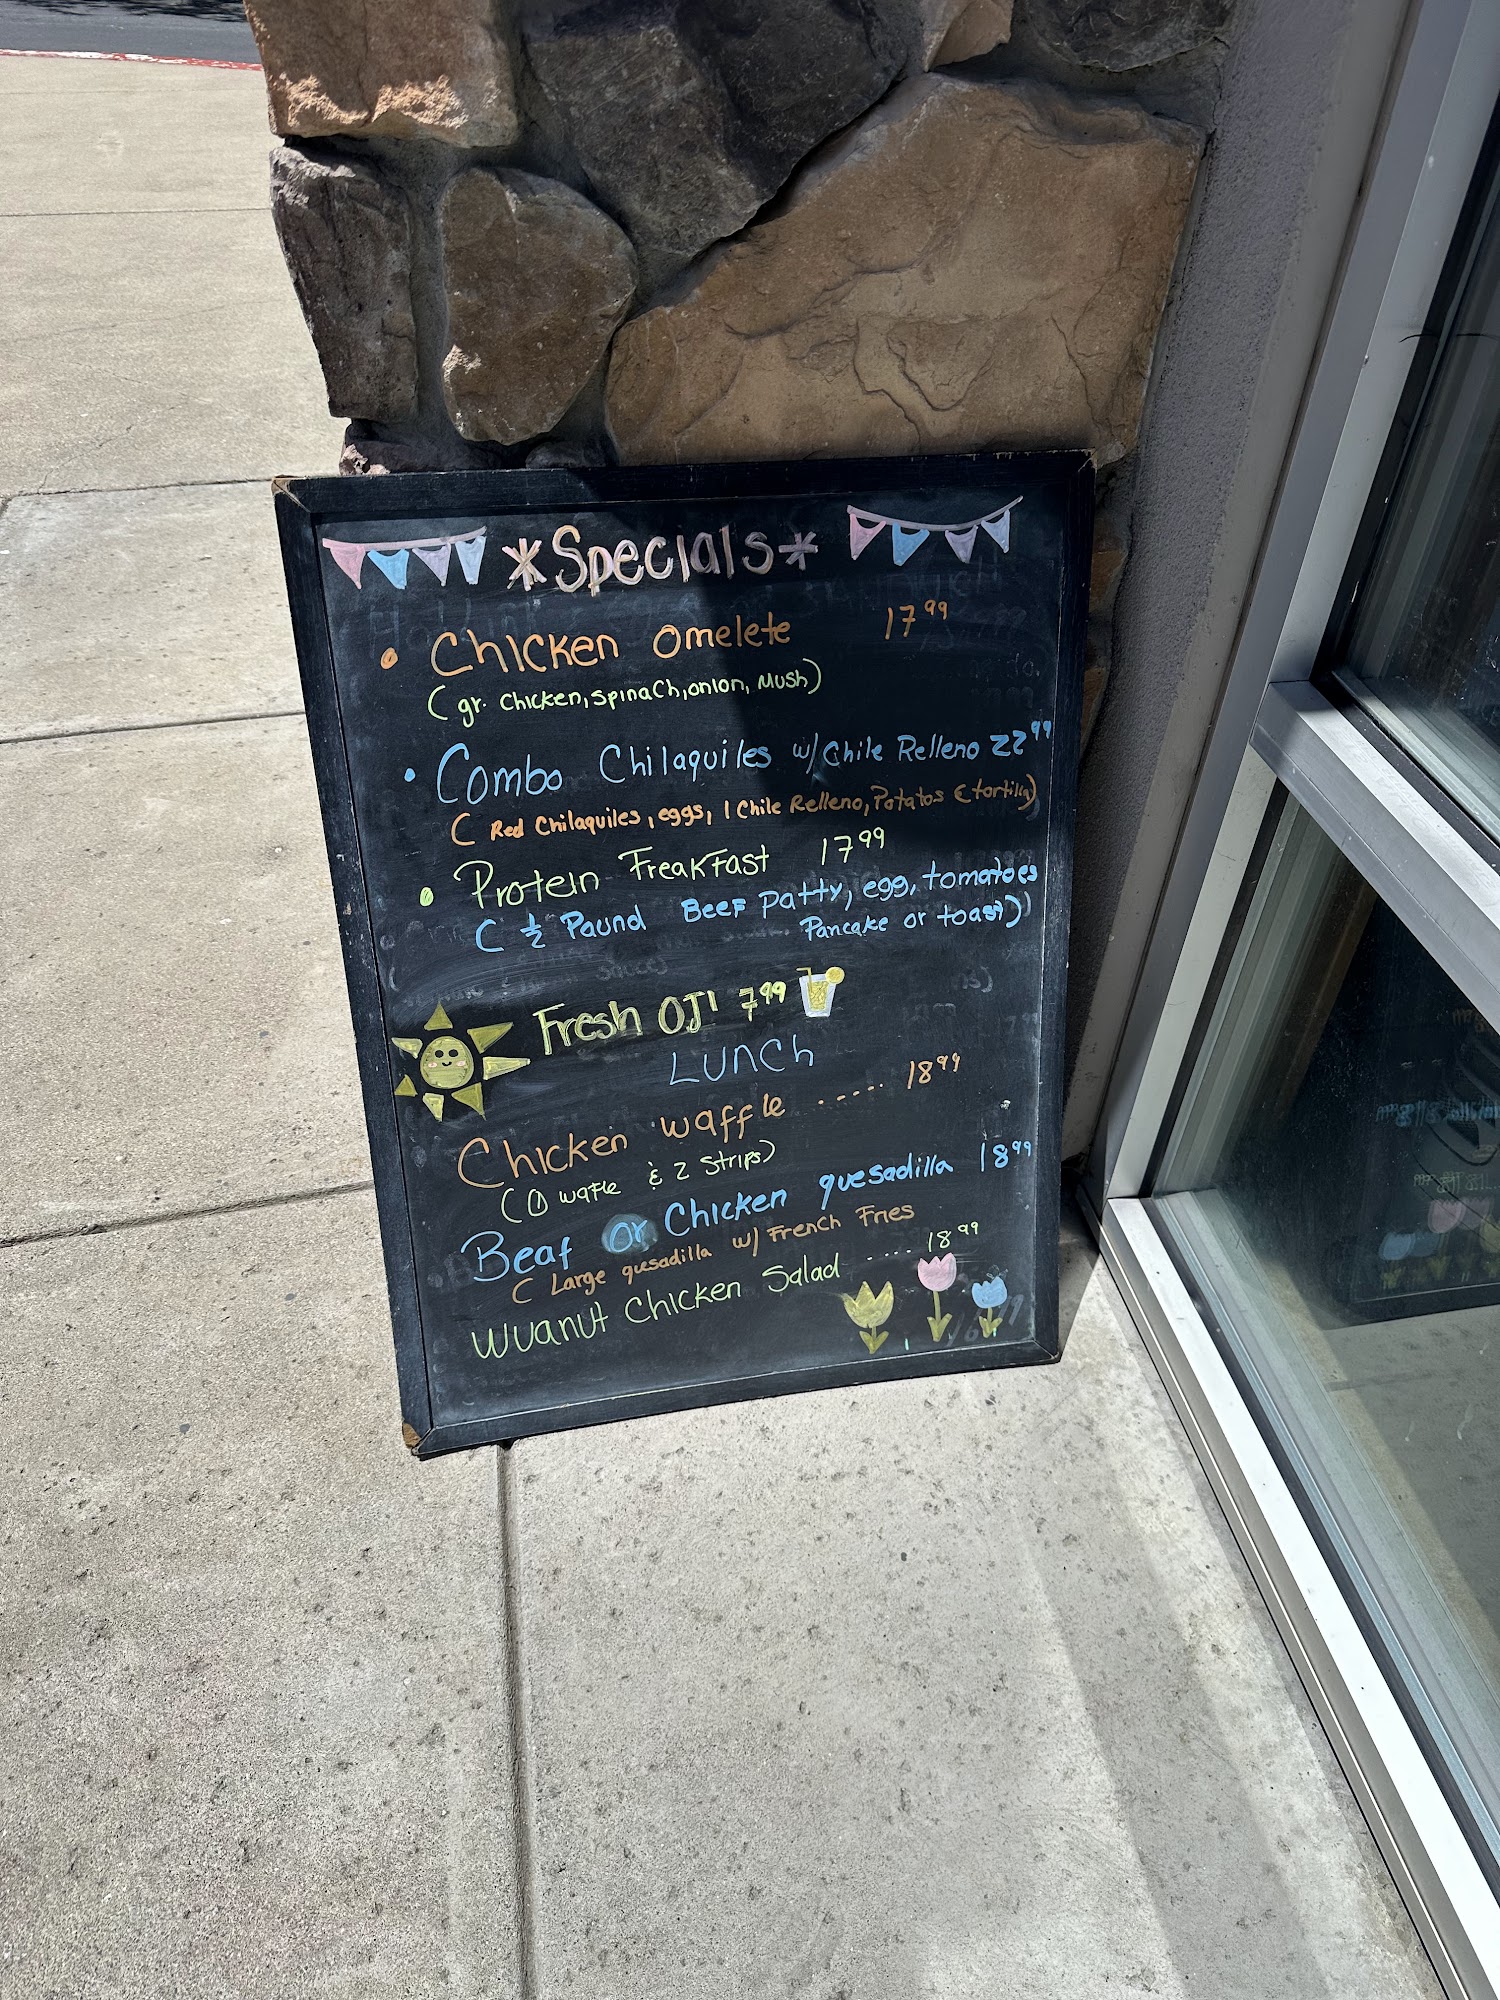 *Specials*
• Chicken omelete 17.99
(gr. chicken, spinach, onion, mush)
• Combo Chilaquiles w/ Chile Relleno 22.99
( Red Chilaquiles, eggs, 1 Chile Relleno, Potatos & tortilla)
• Protein Freakfast 17.99
( ½ Paund Beef Patty, egg, tomatoes
Pancake or toast)
Fresh OJ! 7.99
LUNCh
Chicken waffle ..... 18.99
(1 waffle & 2 strips)
Beaf or Chicken quesadilla 18.99
( Large quesadilla w/ French Fries
Wuanut Chicken Salad .... 18.99